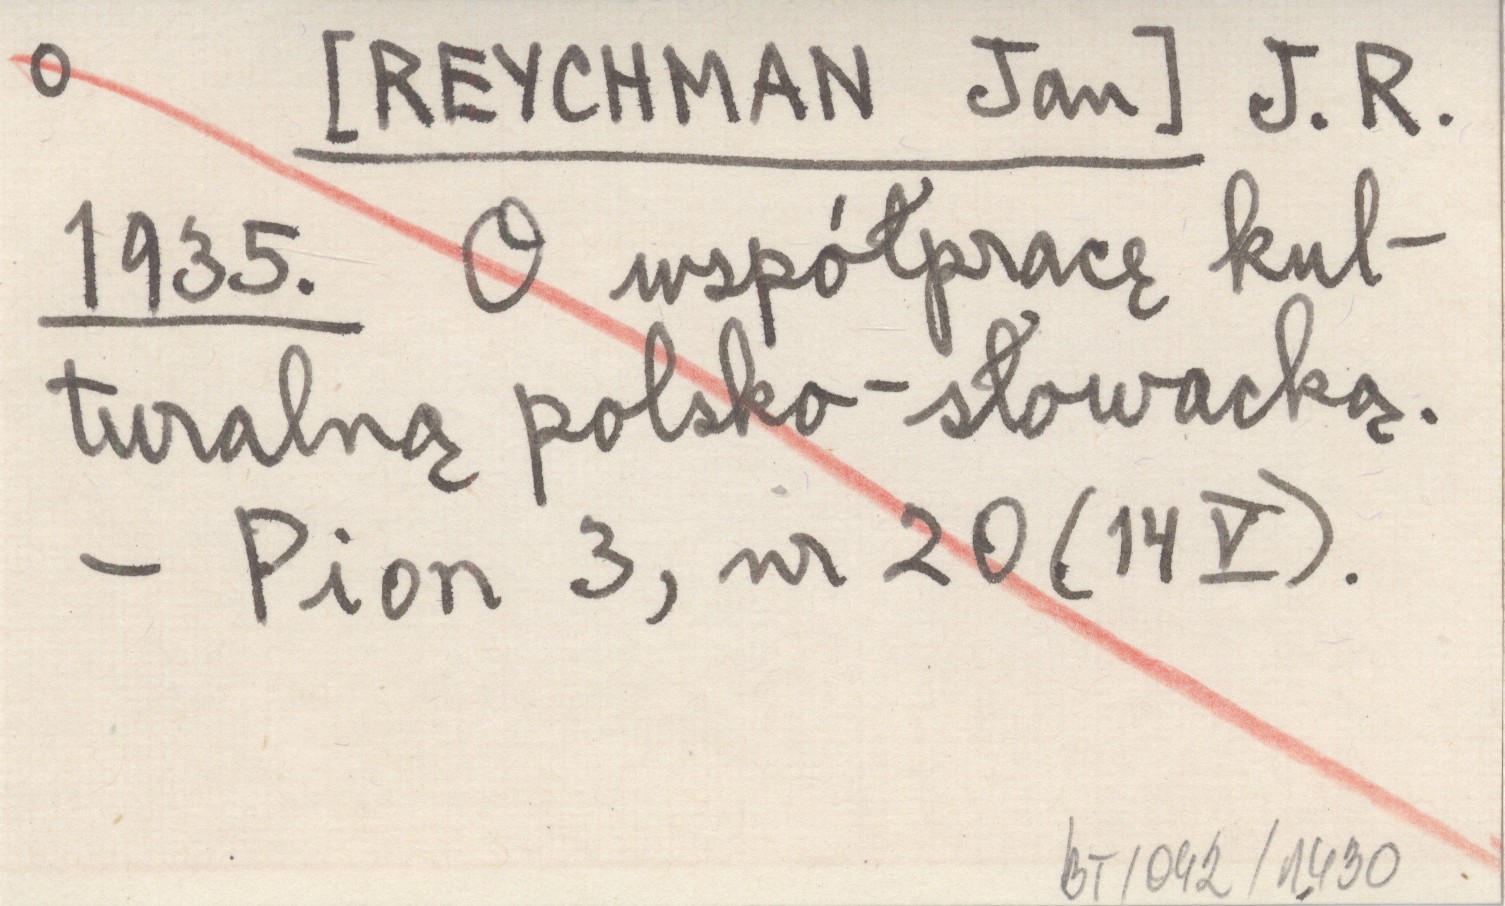 o [REYCHMAN Jan] J.R.
1935. O współpracę kul-
turalną polsko-słowacką.
- Pion 3, nr 20 (14 V).
BT/042/1430